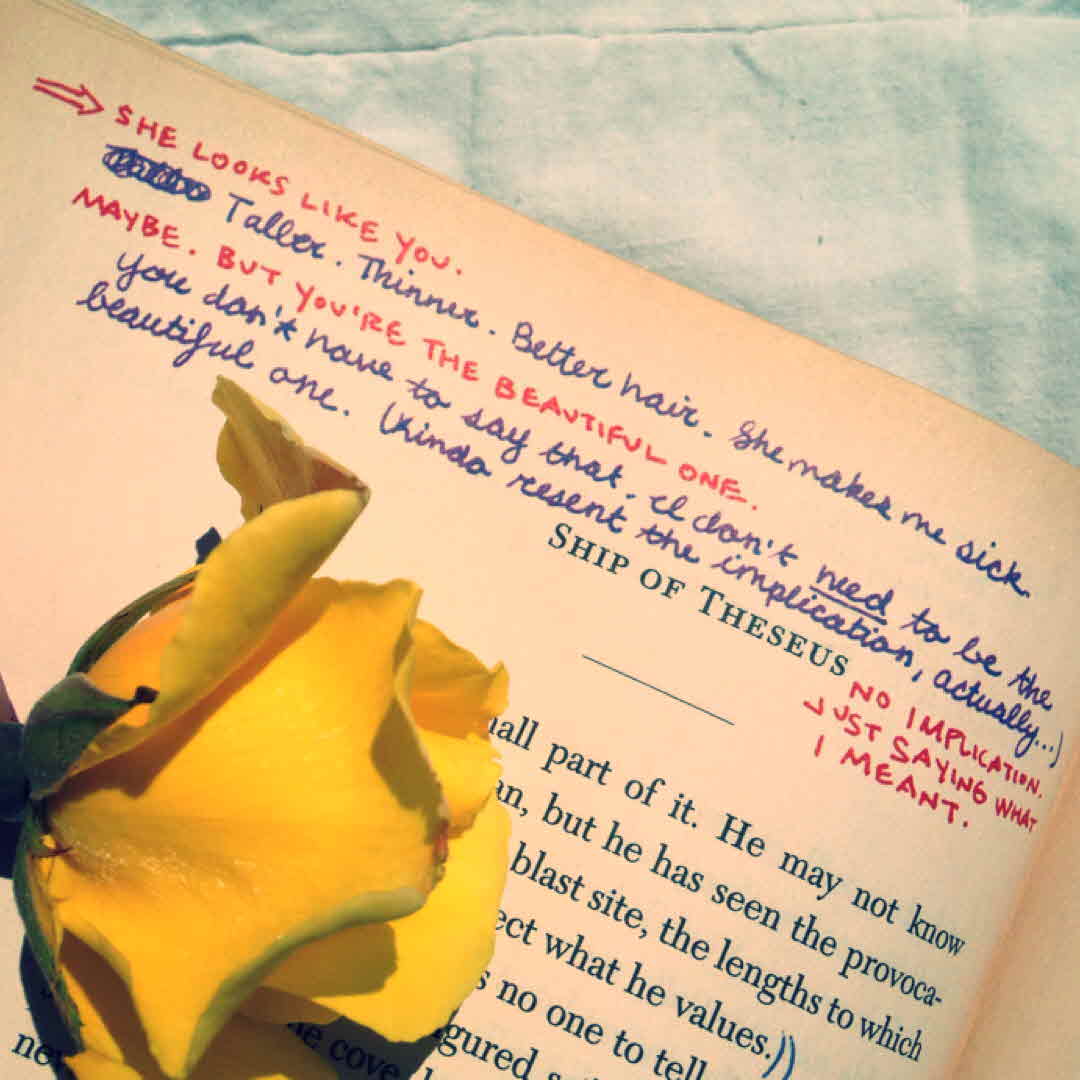 SHE LOOKS LIKE YOU.
Taller. Thinner. Better hair. She makes me sick.
MAYBE. BUT YOU'RE THE BEAUTIFUL ONE.
You don't have to say that. I don't need to be the
beautiful one. (Kinda resent the implication, actually...)
SHIP OF THESEUS
NO IMPLICATION.
JUST SAYING WHAT
I MEANT.
part of it. He may not know
but he has seen the provoca-
blast site, the lengths to which
what he values.
no one to tell
cove